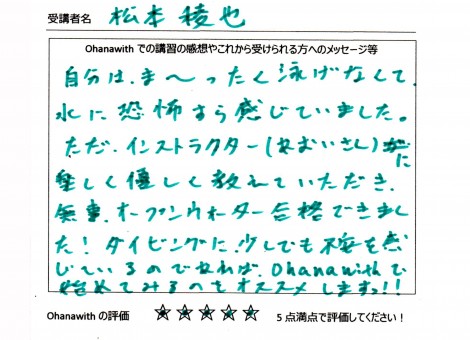 受講者名 松本 稜也
Ohanawith での講習の感想やこれから受けられる方へのメッセージ等
自分は、ま〜ったく泳げなくて、
水に恐怖すら感じていました。
ただ、インストラクター(なおいさん)に
楽しく優しく教えていただき、
無事、オープンウォーター合格できまし
た！ダイビングに少しでも不安を感
じているのであれば、Ohanawithで
始めてみるのをオススメしますっ!!
Ohanawith の評価 ☆☆☆☆☆ 5 点満点で評価してください！